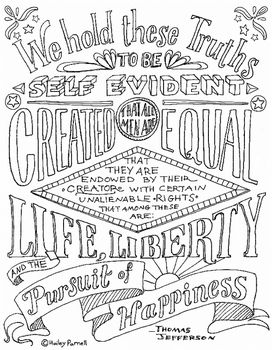 We hold these Truths
TO BE
SELF EVIDENT
THAT ALL
CREATED MEN ARE EQUAL
THAT
THEY ARE
ENDOWED BY THEIR
CREATOR WITH CERTAIN
UNALIENABLE RIGHTS
THAT AMONG THESE
ARE:
LIFE, LIBERTY
AND THE
Pursuit of
Happiness
—THOMAS
JEFFERSON
©Hailey Parnell